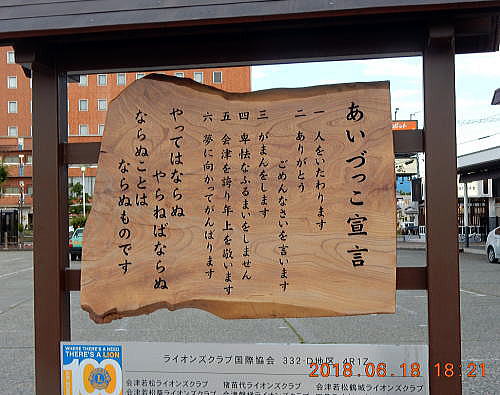 あいづっこ宣言
一 人をいたわります
二 ありがとう
ごめんなさいを言います
三 がまんをします
四 卑怯なふるまいをしません
五 会津を誇り年上を敬います
六 夢に向かってがんばります
やってはならぬ
やらねばならぬ
ならぬことは
ならぬものです
WHERE THERE'S A NEED
THERE'S A LION
100
ライオンズクラブ国際協会 332-D地区 4R1Z
会津若松ライオンズクラブ 猪苗代ライオンズクラブ 会津若松鶴城ライオンズクラブ
2018.06.18 18:21